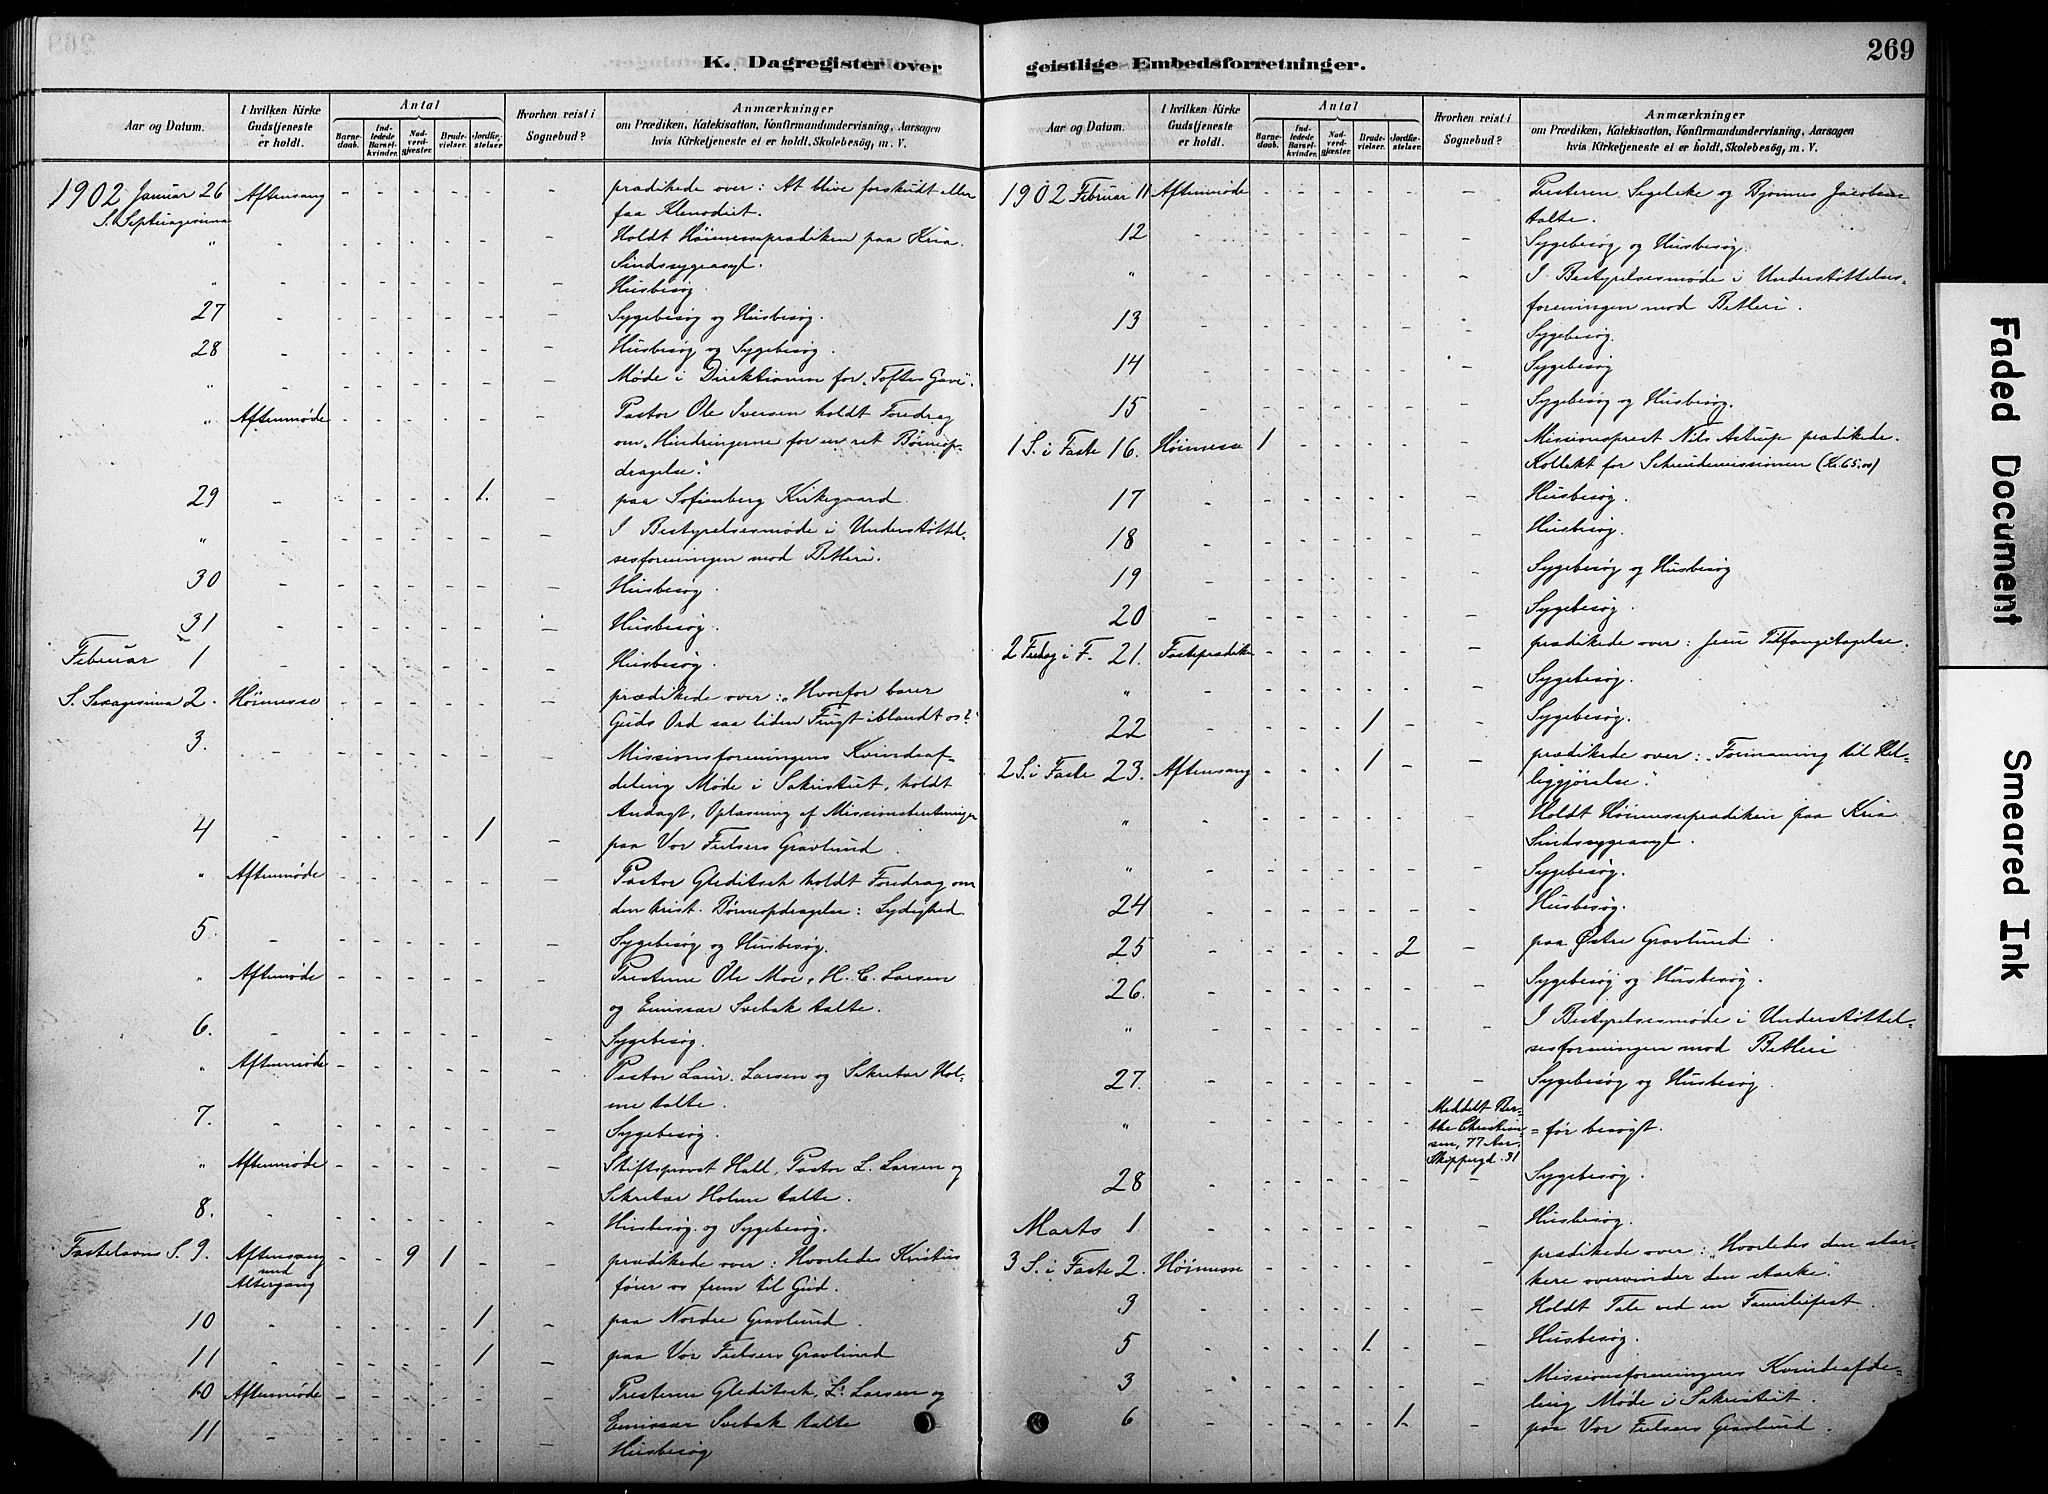 K. Dagregister over geistlige Embedsforretninger.
269
Aar og Datum.
I hvilken Kirke Gudstjeneste er holdt.
Antal
Barnedaab.
Indledede Barselkvinder.
Nadverdgjæster.
Brudevielser.
Jordfæstelser.
Hvorhen reist i Sognebud?
Anmærkninger
om Prædiken, Katekisation, Konfirmandundervisning, Aarsagen
hvis Kirketjeneste ei er holdt, Skolebesøg, m. V.
1902 Januar 26 Aftensang - - - - - - prædikede over: At blive forskudt eller
S. Septuagesima faa Klenodiet.
" - - - - - - - Holdt Høimesseprædiken paa Kria
Sindssygeasyl.
" - - - - - - - Husbesøg
27 - - - - - - - Sygebesøg og Husbesøg.
28 - - - - - - - Husbesøg og Sygebesøg.
" - - - - - - - Møde i Direktionen for "Toftes Gave".
" Aftenmøde - - - - - - Pastor Ole Iversen holdt Foredrag
om "Hindringerne for en ret Børneop-
dragelse."
29 - - - - - 1. - paa Sofienberg Kirkegaard.
" - - - - - - - I Bestyrelsesmøde i Understøttel-
sesforeningen mod Betleri.
30 - - - - - - - Husbesøg
31 - - - - - - - Husbesøg.
Februar 1 - - - - - - - Husbesøg.
S. Sexagesima 2. Høimesse - - - - - - prædikede over: "Hvorfor bærer
Guds Ord saa liden Frugt iblandt os?"
3. - - - - - - - Missionsforeningens Kvindeaf-
deling Møde i Sakristiet, holdt
Andagt, Oplæsning af Missionsberetninger
4 - - - - - 1 - paa Vor Frelsers Gravlund.
" Aftenmøde - - - - - - Pastor Gleditsch holdt Foredrag om
den krist. Børneopdragelse: Lydighed.
5. - - - - - - - Sygebesøg og Husbesøg.
" Aftenmøde - - - - - - Presterne Ole Moe, H. C. Larsen
og Emissær Svebak talte.
6. - - - - - - - Sygebesøg.
" Aftenmøde - - - - - - Pastor Laur. Larsen og Sekretær Hol-
me talte.
7. - - - - - - - Sygebesøg.
" Aftenmøde - - - - - - Stiftsprovst Hall, Pastor L. Larsen og
Sekretær Holme talte.
8. - - - - - - - Husbesøg og Sygebesøg.
Fastelavns S. 9. Aftensang - - 9 1 - - prædikede over: Hvorledes Kristus
med
Altergang fører os frem til Gud.
10 - - - - - 1 - paa Nordre Gravlund.
11 - - - - - 1 - paa Vor Frelsers Gravlund
10 Aftenmøde - - - - - - Presterne Gleditsch, L. Larsen og
Emissær Svebak talte
11 - - - - - - - Husbesøg
Aar og Datum.
I hvilken Kirke Gudstjeneste er holdt.
Antal
Barnedaab.
Indledede Barselkvinder.
Nadverdgjæster.
Brudevielser.
Jordfæstelser.
Hvorhen reist i Sognebud?
Anmærkninger
om Prædiken, Katekisation, Konfirmandundervisning, Aarsagen
hvis Kirketjeneste ei er holdt, Skolebesøg, m. V.
1902 Februar 11 Aftenmøde - - - - - - Presterne Sigelcke og Bjønnes Jacobsen
talte.
12 - - - - - - - Sygebesøg og Husbesøg.
" - - - - - - - I Bestyrelsesmøde i Understøttelses-
foreningen mod Betleri.
13 - - - - - - - Sygebesøg.
14 - - - - - - - Sygebesøg
15 - - - - - - - Sygebesøg og Husbesøg.
1 S. i Faste 16. Høimesse 1 - - - - - Missionsprest Nils Astrup prædikede.
Kollekt for Schreudermissionen (Kr. 65.00)
17 - - - - - - - Husbesøg.
18 - - - - - - - Husbesøg.
19 - - - - - - - Sygebesøg og Husbesøg
20 - - - - - - - Sygebesøg.
2 Fredag i F. 21. Fasteprædiken - - - - - - prædikede over: Jesu Tilfangetagelse.
" - - - - - - - Sygebesøg.
22 - - - - 1 - - Sygebesøg.
2 S. i Faste 23. Aftensang - - - 1 - - prædikede over: "Formaning til Hel-
liggjørelse."
" - - - - - - - Holdt Høimesseprædiken paa Kria
Sindssygeasyl.
" - - - - - - - Sygebesøg.
24 - - - - - - - Husbesøg.
25 - - - - - 2 - paa Østre Gravlund.
26. - - - - - - - Sygebesøg og Husbesøg.
" - - - - - - - I Bestyrelsesmøde i Understøttel-
sesforeningen mod Betleri
27. - - - - - - - Sygebesøg og Husbesøg.
" - - - - - - Meddelt Ber-
the Christian-
sen, 77 Aar,
Skippergd. 31 = før besøgt.
28 - - - - - - - Sygebesøg.
Marts 1 - - - - - - - Husbesøg.
3 S. i Faste 2. Høimesse - - - - - - prædikede over: "Hvorledes den stær-
kere overvinder den stærke."
3 - - - - - - - Holdt Tale ved en Familiefest.
5 - - - - 1. - - Husbesøg.
3 - - - - - - - Missionsforeningens Kvindeafde-
ling Møde i Sakristiet.
6 - - - - - 1. - paa Vor Frelsers Gravlund
Faded Document
Smeared Ink